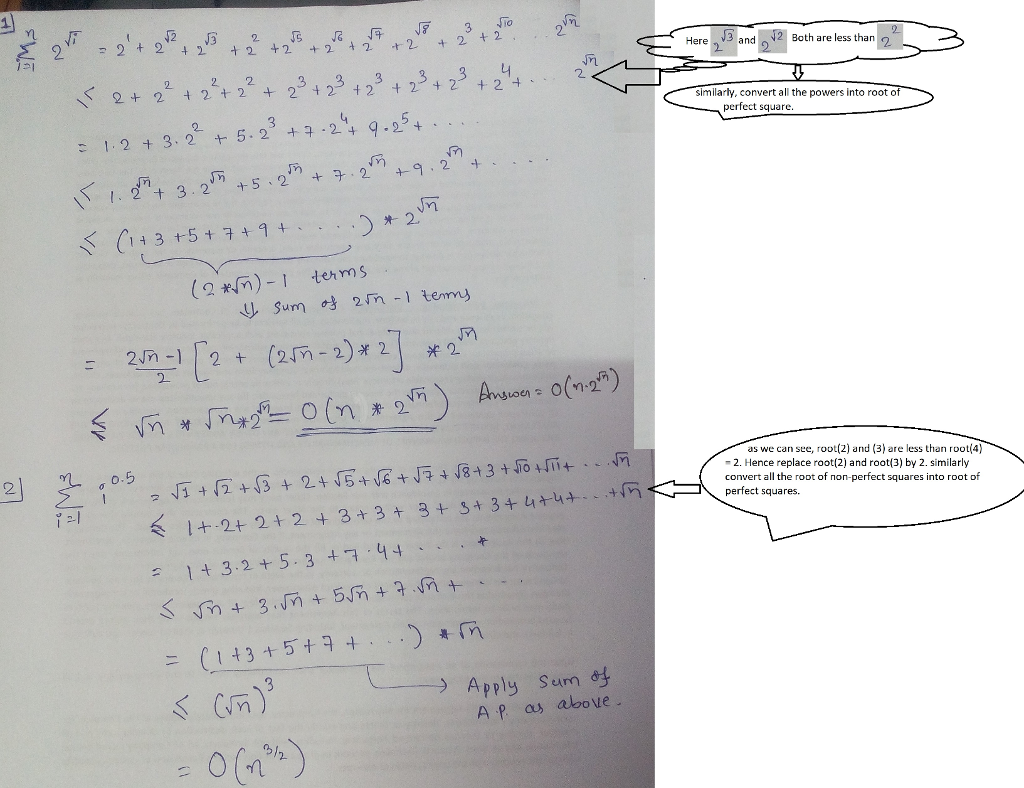 1]
n
Σ 2^√i = 2^1 + 2^√2 + 2^√3 + 2^2 + 2^√5 + 2^√6 + 2^√7 + 2^√8 + 2^3 + 2^√10 . . . . 2^√n
i=1
≤ 2 + 2^2 + 2^2 + 2^2 + 2^3 + 2^3 + 2^3 + 2^3 + 2^3 + 2^4 + . . . 2^√n
= 1.2 + 3.2^2 + 5.2^3 + 7.2^4 + 9.2^5 + . . . .
≤ 1.2^√n + 3.2^√n + 5.2^√n + 7.2^√n + 9.2^√n + . . . .
≤ (1+3+5+7+9+ . . . . ) * 2^√n
(2*√n)-1 terms
⇓ sum of 2√n -1 terms
= 2√n-1/2 [2 + (2√n-2)*2] * 2^√n
≤ √n * √n*2^√n = O(n * 2^√n) Answer = O(n.2^√n)
Here 2^√3 and 2^√2 Both are less than 2^2
similarly, convert all the powers into root of
perfect square.
2]
n
Σ i^0.5 = √1 + √2 + √3 + 2 + √5 + √6 + √7 + √8 + 3 + √10 + √11 + . . . √n
i=1
≤ 1+2+2+2+3+3+3+3+3+4+4+ . . . +√n
= 1+3.2+5.3+7.4+ . . . *
≤ √n + 3.√n + 5√n + 7.√n + . . .
= (1+3+5+7+ . . .) * √n
≤ (√n)^3
Apply Sum of
A.P. as above.
= O(n^3/2)
as we can see, root(2) and (3) are less than root(4)
= 2. Hence replace root(2) and root(3) by 2. similarly
convert all the root of non-perfect squares into root of
perfect squares.